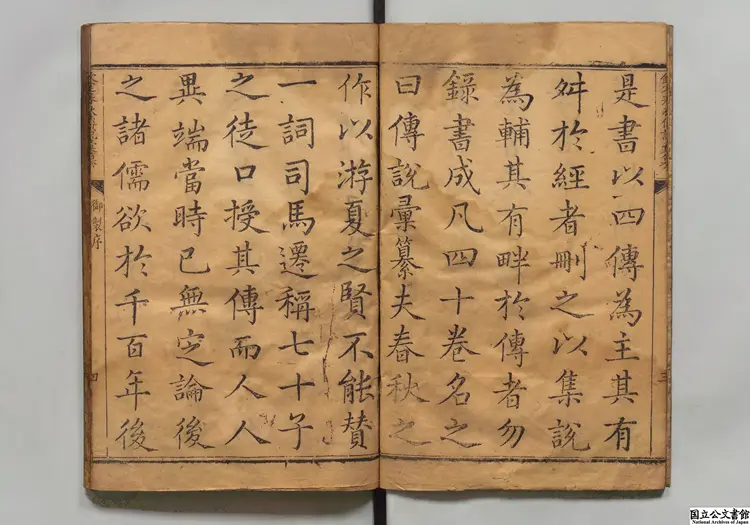 是書以四傳為主其有
舛於經者刪之以集說
為輔其有畔於傳者勿
錄書成凡四十卷名之
曰傳說彙纂夫春秋之
作以游夏之賢不能贊
一詞司馬遷稱七十子
之徒口授其傳而人人
異端當時已無定論後
之諸儒欲於千百年後
三
御製序
四
国立公文書館
National Archives of Japan